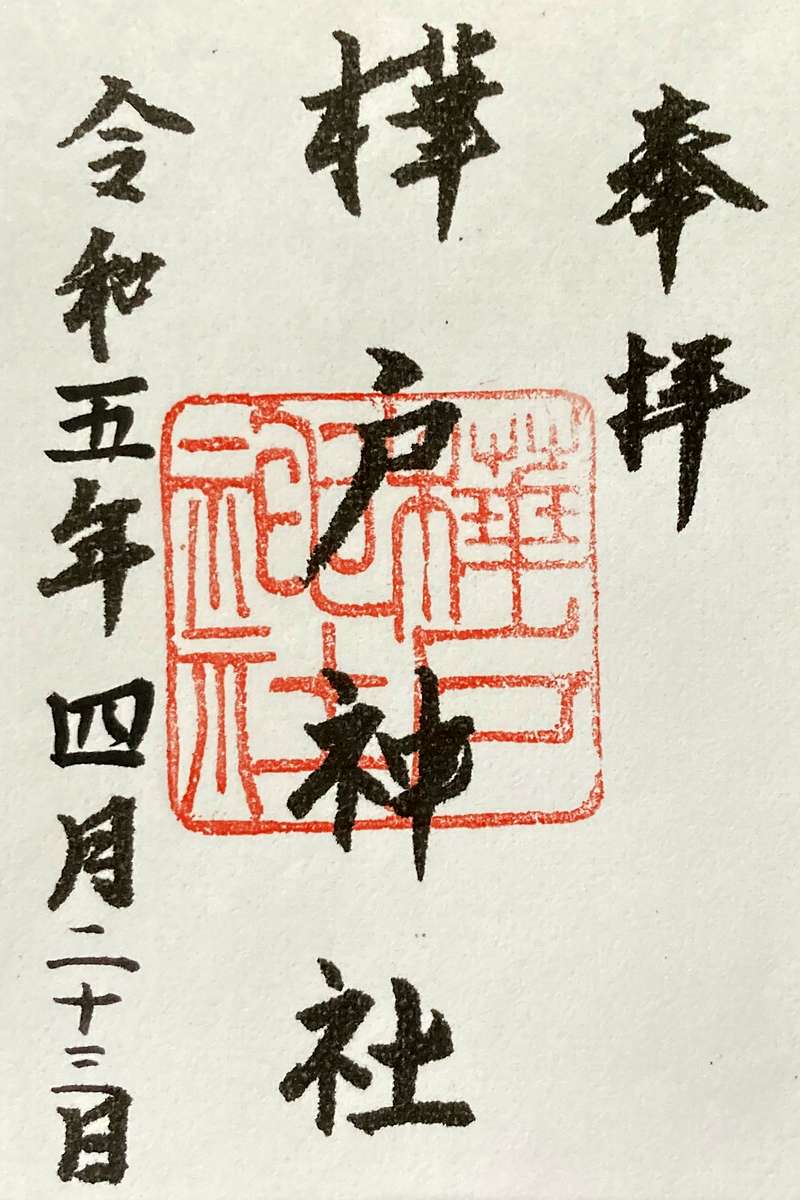 奉拝
樺戸神社
令和五年四月二十三日
樺戸神社